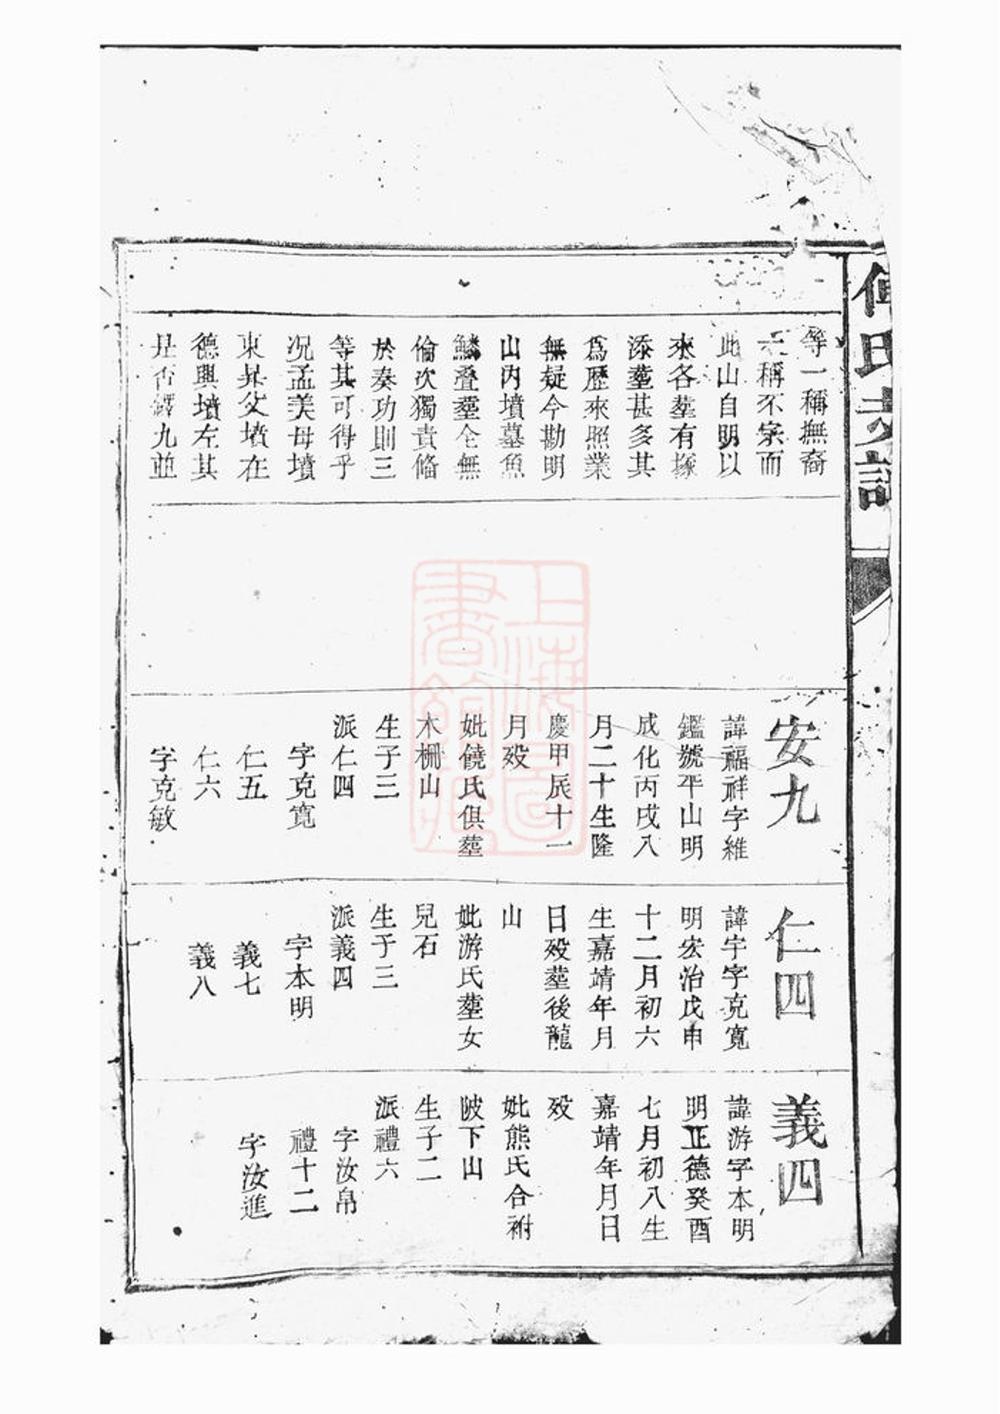 何氏支譜
等一稱撫裔
一稱不宗而
此山自明以
來各塟有據
添塟甚多其
爲歷來照業
無疑今勘明
山內墳墓魚
鱗叠塟全無
倫次獨責脩
於奏功則三
等其可得乎
况孟美母墳
東昇父墳在
德興墳左其
是否鐸九並
安九
諱福祥字維
鑑號平山明
成化丙戌八
月二十生隆
慶甲辰十一
月歿
妣饒氏俱塟
木栅山
生子三
派仁四
字克寬
仁五
仁六
字克敏
仁四
諱宇字克寬
明宏治戊申
十二月初六
生嘉靖年月
日歿塟後龍
山
妣游氏塟女
兒石
生子三
派義四
字本明
義七
義八
義四
諱游字本明
明正德癸酉
七月初八生
嘉靖年月日
歿
妣熊氏合祔
陂下山
生子二
派禮六
字汝帛
禮十二
字汝進
上海圖
書館藏